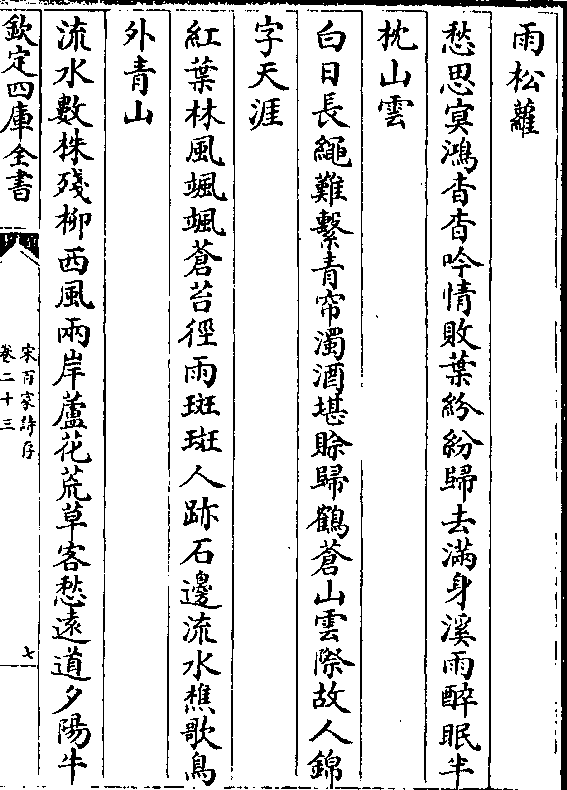 雨松蘿
愁思㝠鴻杳杳吟情敗葉紛紛歸去滿身溪雨醉眠半
枕山雲
白日長繩難繫青帘濁酒堪賒歸鶴蒼山雲際故人錦
字天涯
紅葉林風颯颯蒼苔徑雨斑斑人跡石邊流水樵歌鳥
外青山
流水數株殘柳西風兩岸蘆花荒草客愁遠道夕陽牛
欽定四庫全書
宋百家詩存
卷二十三
七